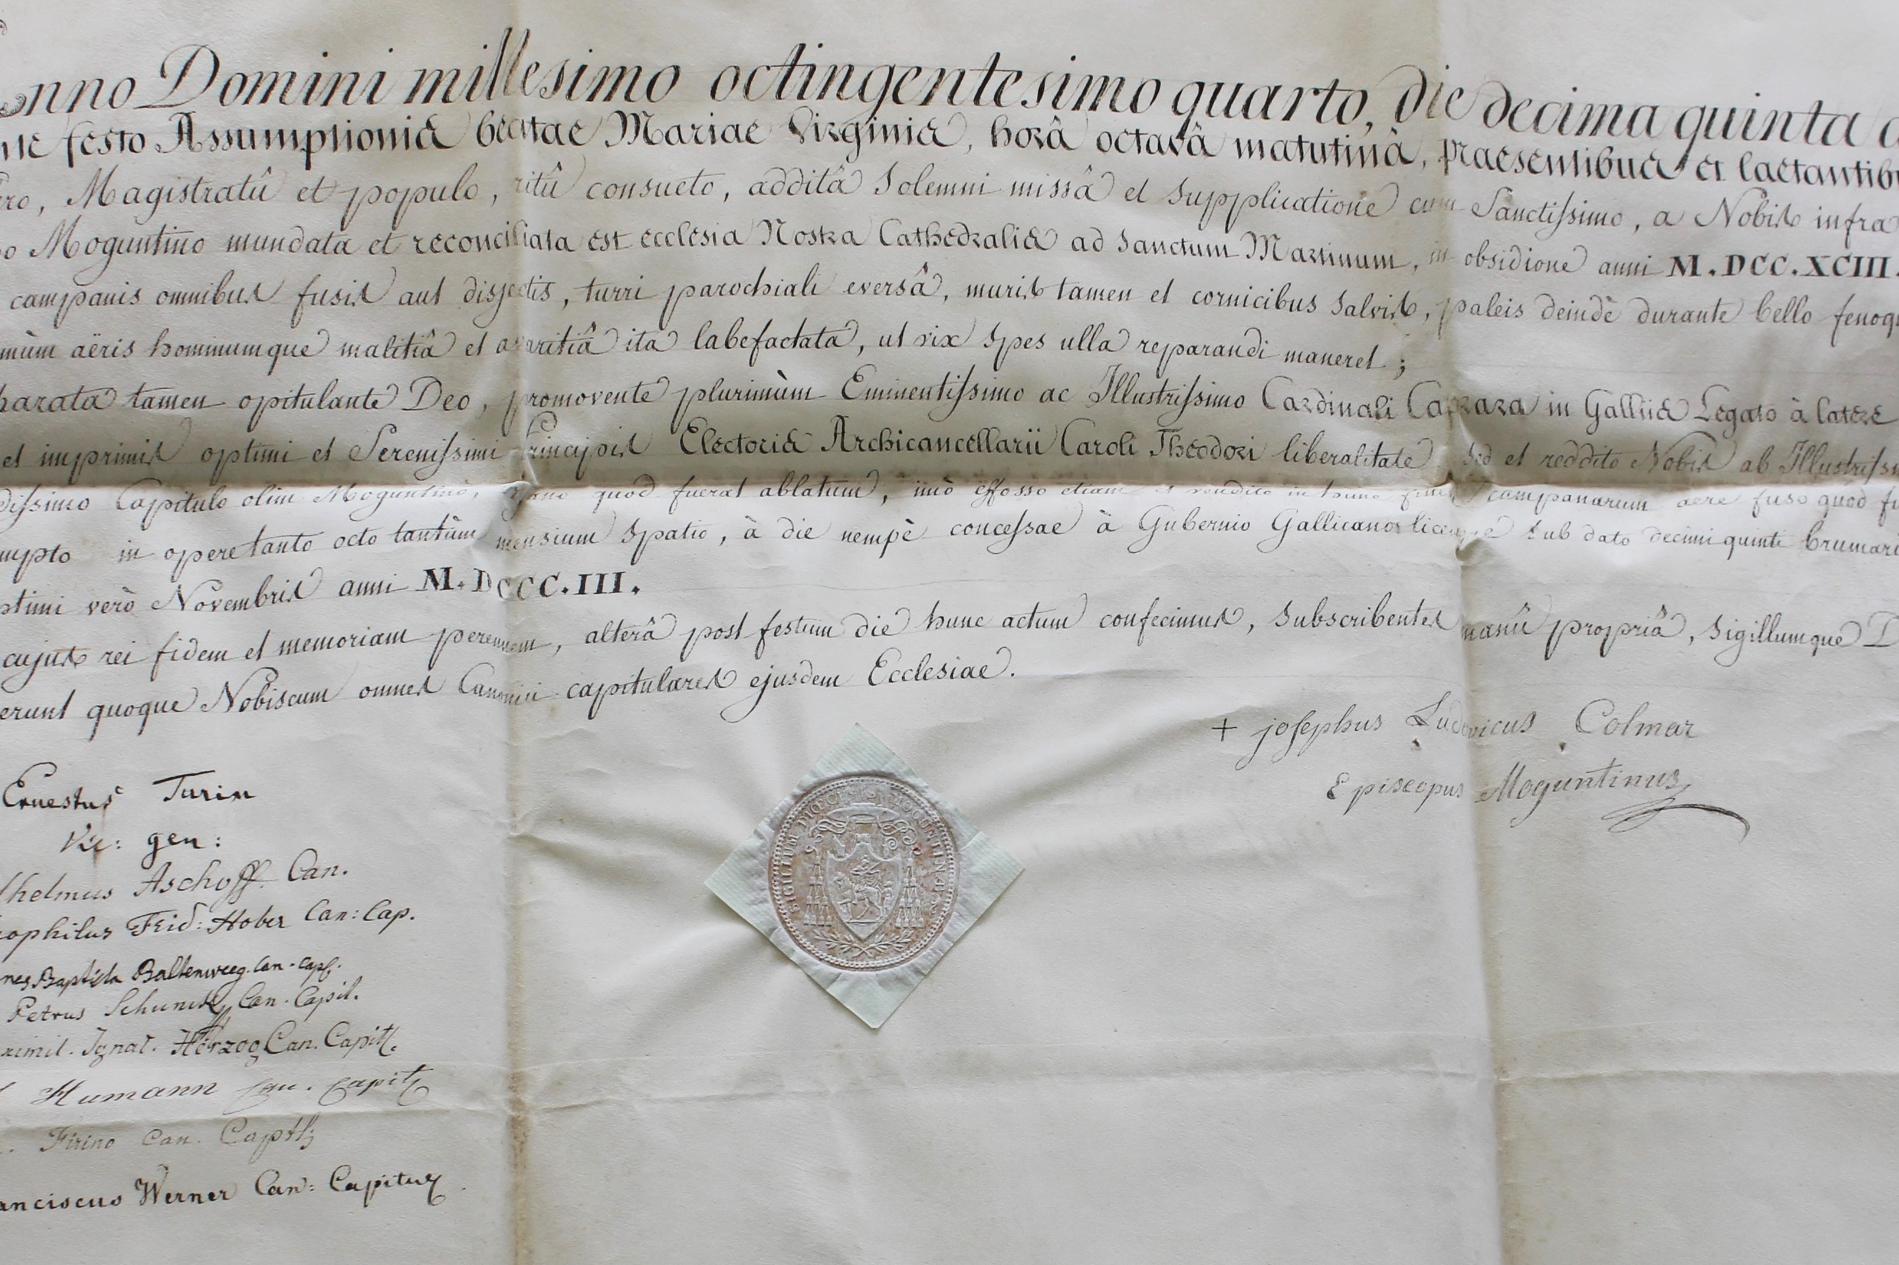 Anno Domini millesimo octingentesimo quarto, die decima quinta
festo Assumptionis beatae Mariae Virginis, horâ octavâ matutinâ, praesentibus et laetantibu
ro, Magistratû et populo, ritû consueto, additâ solemni missâ et supplicatione cum Sanctissimo, a Nobis infra
o Moguntino mundata et reconciliata est ecclesia Nostra Cathedralis ad sanctum Martinum, in obsidione anni M.DCC.XCIII.
campanis omnibus fusis aut disjectis, turri parochiali eversâ, muris tamen et cornicibus salvis, paleis deindè durante bello fenoq
mùm aëris hominumque malitiâ et avaritiâ ita labefactata, ut vix spes ulla reparandi maneret;
parata tamen opitulante Deo, promovente plurimùm Eminentissimo ac Illustrissimo Cardinali Caprara in Galliis Legato à latere
et imprimis optimi et Serenissimi Principis Electoris Archicancellarii Caroli Theodori liberalitate, sed et reddito Nobis ab Illustrissi
dissimo Capitulo olim Moguntino, quod fuerat ablatum, imò effosso etiam et vendito in hunc finem campanarum aere fuso quod fu
mpto in opere tanto octo tantùm mensium spatio, à die nempè concessae à Gubernio Gallicano licentiae sub dato decimi quinti brumari
ptimi verò Novembris anni M.DCCC.III.
cujus rei fidem et memoriam perennem, alterâ post festum die hunc actum confecimus, subscribentes manû propriâ, sigillumque D
erunt quoque Nobiscum omnes Canonici capitulares ejusdem Ecclesiae.
+ Josephus Ludovicus Colmar
Episcopus Moguntinus
Ernestus Turin
Vic: gen:
lhelmus Aschoff. Can.
ophilus Frid: Hober Can: Cap.
nes Baptista Baltenweeg. Can. Cap.
Petrus Schunck Can. Capit.
ximil. Ignat. Herzog Can. Capit.
Humann Can. Capit
Firino Can. Capit
anciscus Werner Can: Capitu
SIGILLUM MOGUNTINENSIS